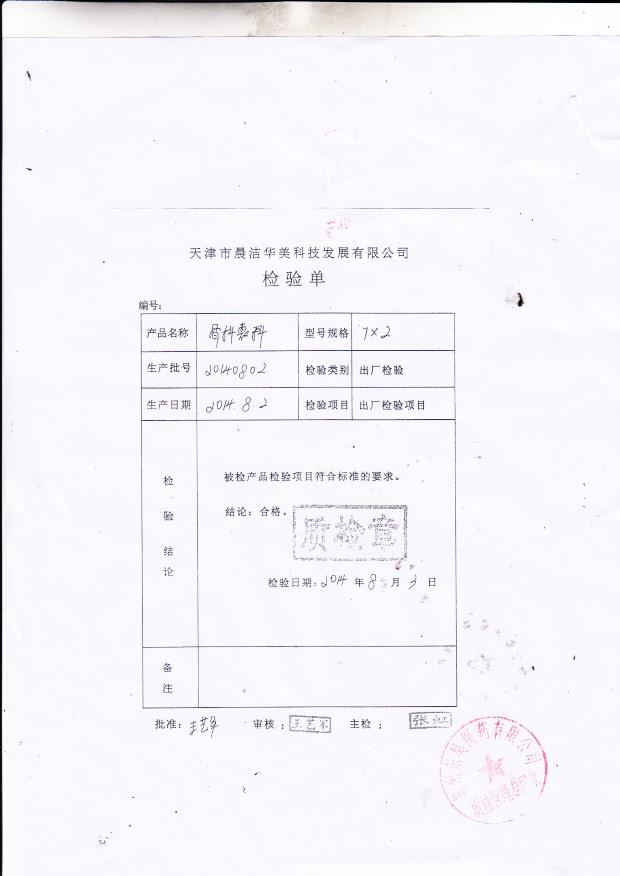 天津市晨洁华美科技发展有限公司
检验单
编号：
产品名称 骨科敷料 型号规格 7×2
生产批号 20140802 检验类别 出厂检验
生产日期 2014.8.2 检验项目 出厂检验项目
检验结论
被检产品检验项目符合标准的要求。
结论：合格。
质检章
检验日期：2014年8月3日
备注
批准：王艺军 审核：王艺军 主检：张虹
医药有限公司